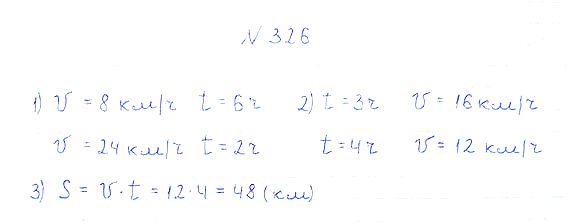 N 326
1) v = 8 км/ч t = 6ч 2) t = 3ч v = 16 км/ч
v = 24 км/ч t = 2ч t = 4ч v = 12 км/ч
3) S = v · t = 12 · 4 = 48 (км)